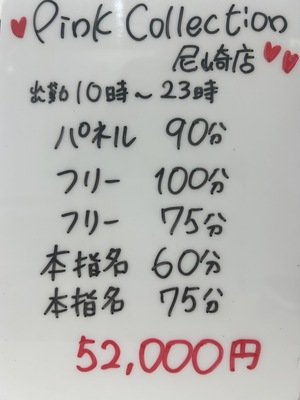 Pink Collection
尼崎店
出勤10時～23時
パネル 90分
フリー 100分
フリー 75分
本指名 60分
本指名 75分
52,000円